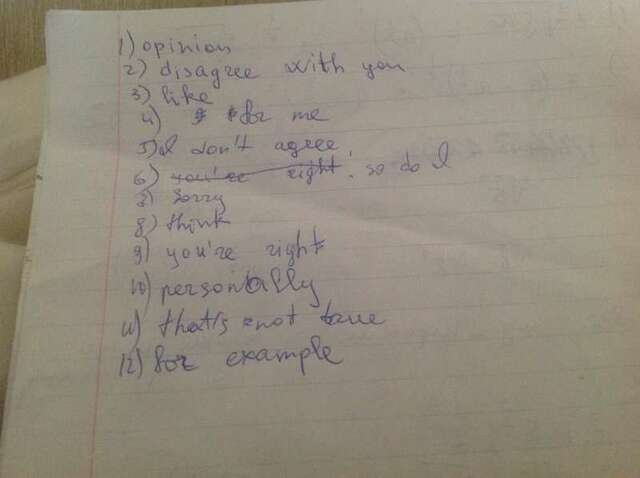 1) opinion
2) disagree with you
3) like
4) for me
5) I don't agree
6) you're right. so do I
8) sorry
8) think
9) you're right
10) personally
11) that's not true
12) for example